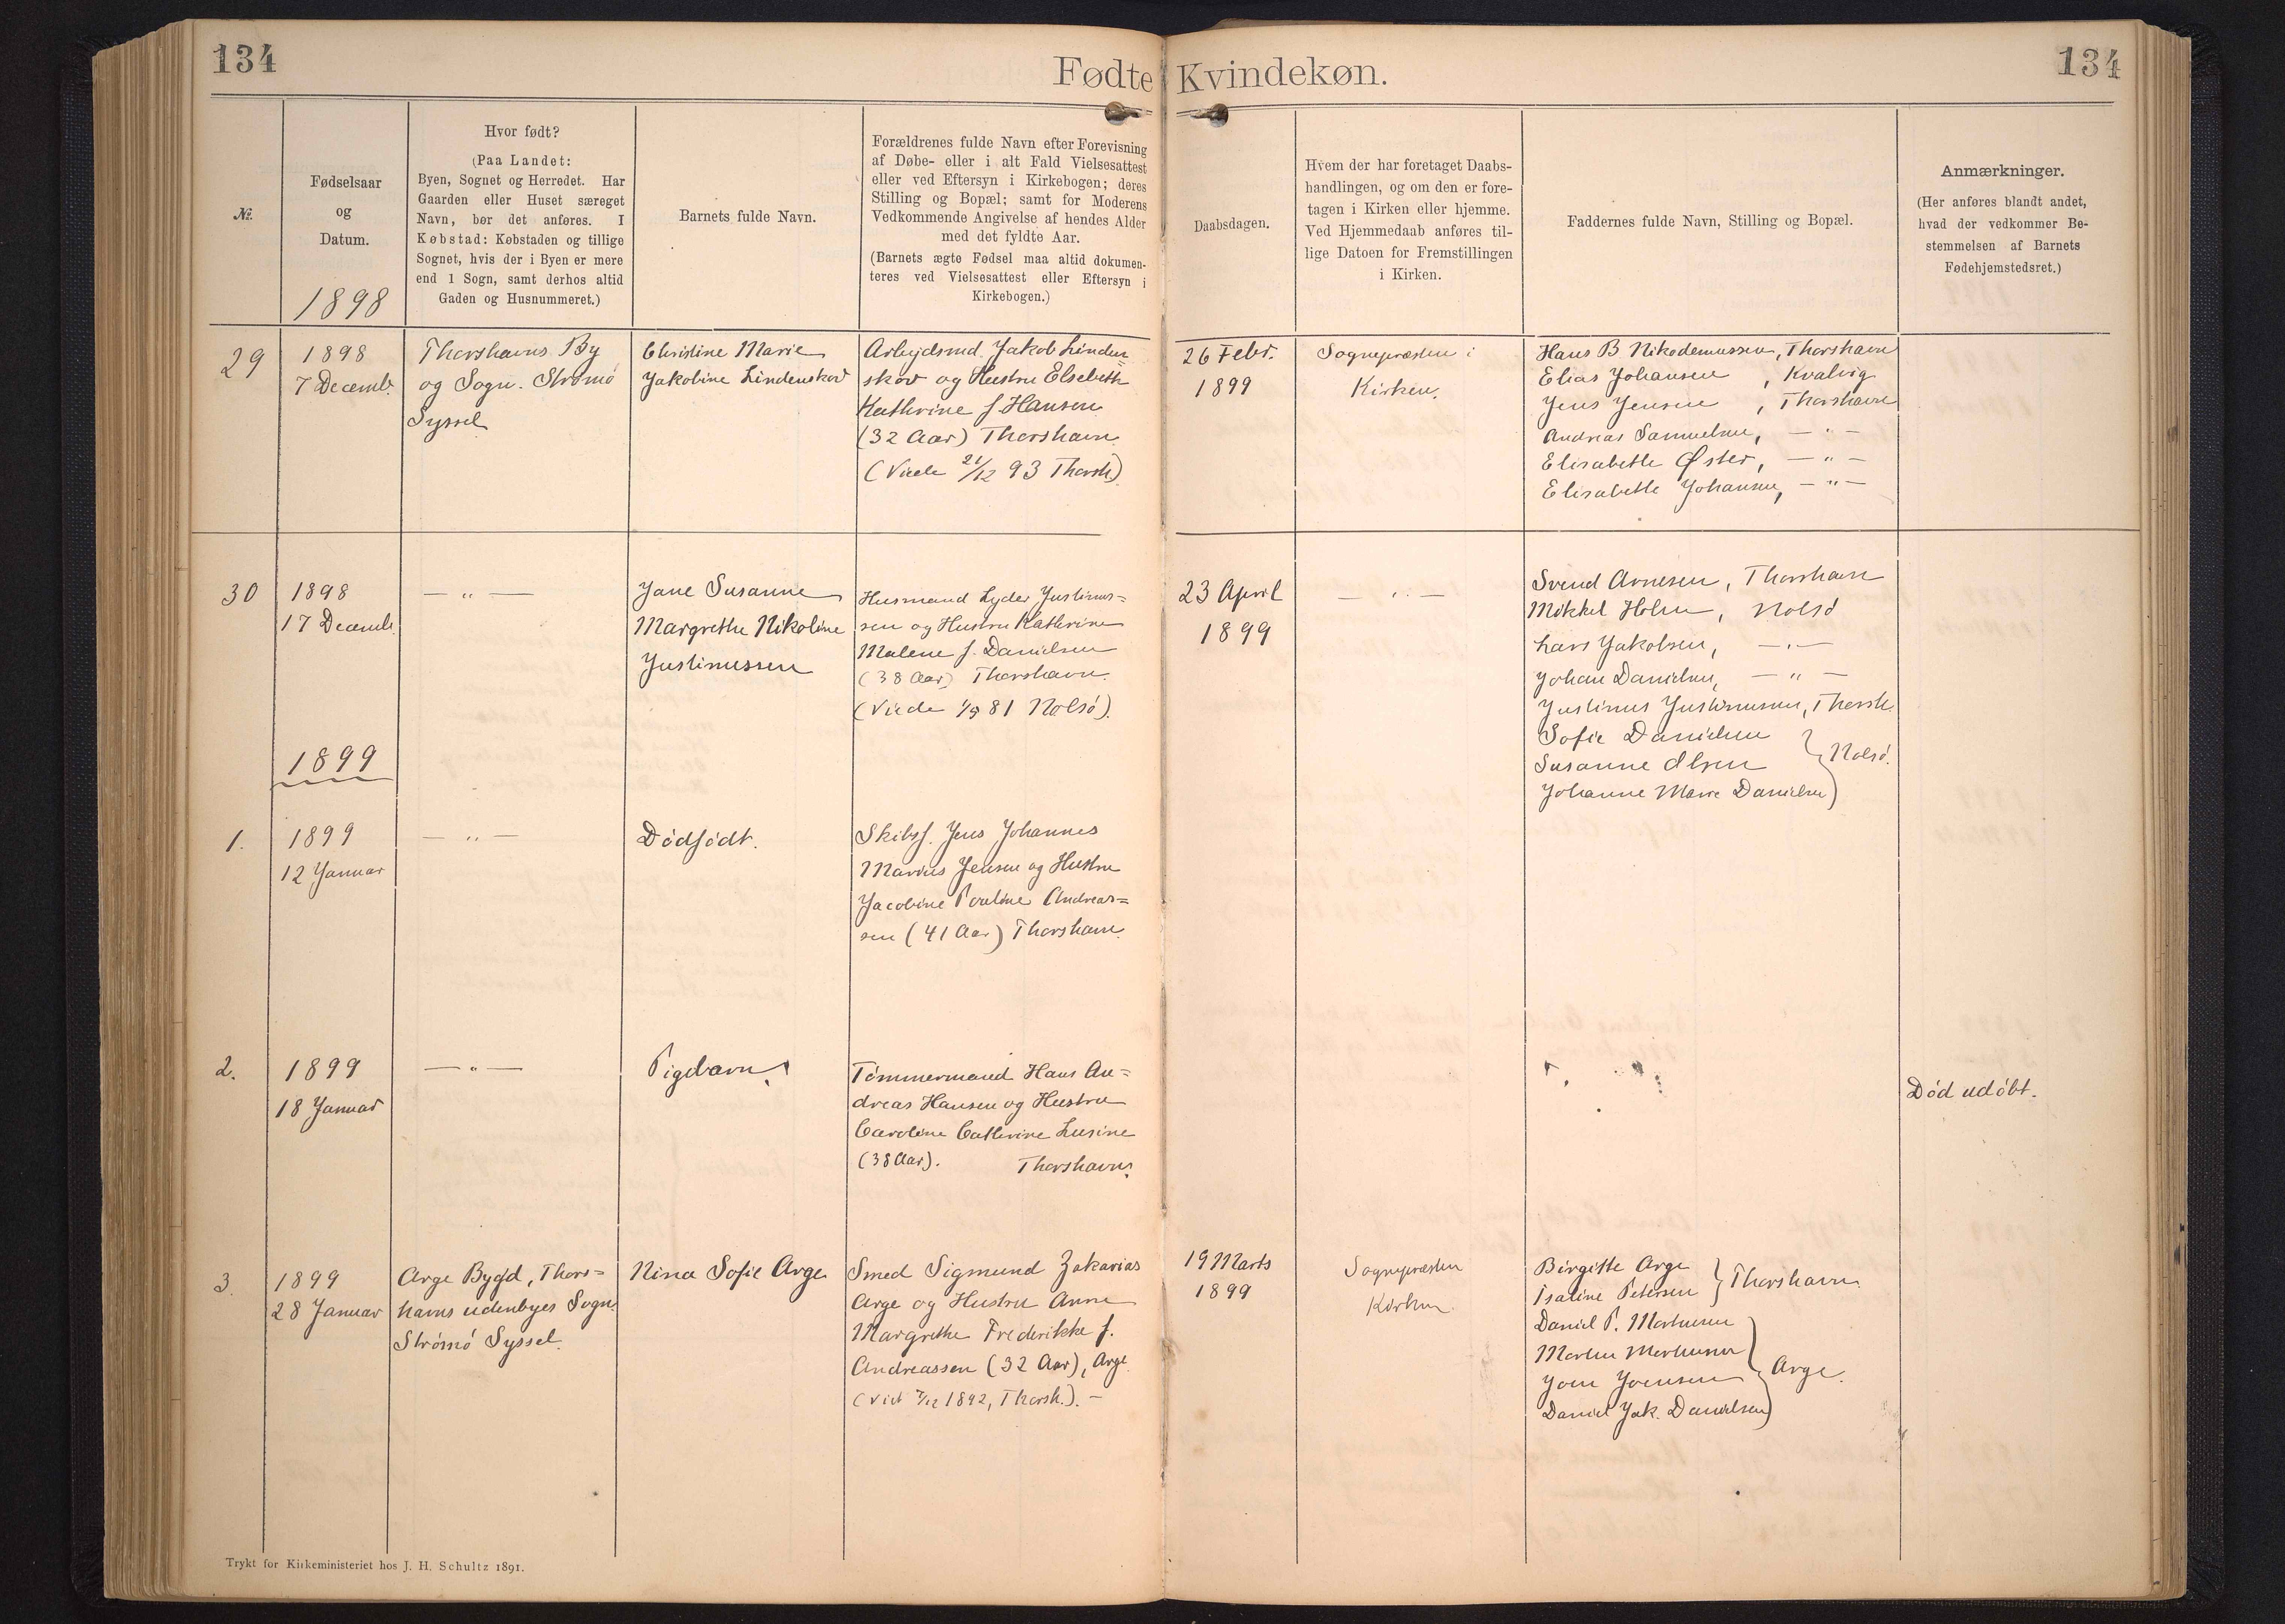 134
Fødte Kvindekøn.
134
№.
Fødselsaar
og
Datum.
1898
Hvor født?
(Paa Landet:
Byen, Sognet og Herredet. Har
Gaarden eller Huset særeget
Navn, bør det anføres. I
Købstad: Købstaden og tillige
Sognet, hvis der i Byen er mere
end 1 Sogn, samt derhos altid
Gaden og Husnummeret.)
Barnets fulde Navn.
Forældrenes fulde Navn efter Forevisning
af Døbe- eller i alt Fald Vielsesattest
eller ved Eftersyn i Kirkebogen; deres
Stilling og Bopæl; samt for Moderens
Vedkommende Angivelse af hendes Alder
med det fyldte Aar.
(Barnets ægte Fødsel maa altid dokumen-
teres ved Vielsesattest eller Eftersyn i
Kirkebogen.)
Daabsdagen.
Hvem der har foretaget Daabs-
handlingen, og om den er fore-
tagen i Kirken eller hjemme.
Ved Hjemmedaab anføres til-
lige Datoen for Fremstillingen
i Kirken.
Faddernes fulde Navn, Stilling og Bopæl.
Anmærkninger.
(Her anføres blandt andet,
hvad der vedkommer Be-
stemmelsen af Barnets
Fødehjemstedsret.)
29
1898
7 Decemb.
Thorshavns By
og Sogn. Strømø
Syssel
Christine Marie
Jakobine Lindenskov
Arbejdsmd. Jakob Linden=
skov og Hustru Elsebeth
Kathrine f. Hansen
(32 Aar) Thorshavn
(Viede 21/12 93 Thorsh.)
26 Febr.
1899
Sognepræsten i
Kirken.
Hans B Nikodemussen, Thorshavn
Elias Johansen, Kvalvig
Jens Jensen, Thorshavn
Andreas Samuelsen, — " —
Elisabeth Øster, — " —
Elisabeth Johansen, — " —
30
1898
17 Decemb.
— " —
Jane Susanne
Margrethe Nikoline
Justinussen
Husmand Lyder Justinus=
sen og Hustru Kathrine
Malene f. Danielsen
(38 Aar) Thorshavn.
(Viede 1/9 81 Nolsø).
23 April
1899
— " —
Svend Arnesen, Thorshavn
Mikkel Holm, Nolsø
Lars Jakobsen, — " —
Johan Danielsen, — " —
Justinus Justinussen, Thorsh.
Sofie Danielsen
Susanne Olsen } Nolsø.
Johanne Marie Danielsen
1899
1.
1899
12 Januar
— " —
Dødfødt.
Skibsf. Jens Johannes
Marius Jensen og Hustru
Jacobine Pouline Andreas=
sen (41 Aar) Thorshavn.
2.
1899
18 Januar
— " —
Pigebarn
Tømmermand Hans An=
dreas Hansen og Hustru
Caroline Cathrine Lusine
(38 Aar). Thorshavn.
Død udøbt.
3.
1899
28 Januar
Arge Bygd, Thors=
havns udenbyes Sogn.
Strømø Syssel.
Nina Sofie Arge
Smed Sigmund Zakarias
Arge og Hustru Anne
Margrethe Frederikke f.
Andreassen (32 Aar), Arge
(Viet 7/12 1892, Thorsh.). —
19 Marts
1899
Sognepræsten
Kirken
Birgitte Arge
Isaline Petersen } Thorshavn.
Daniel P. Mortensen
Morten Mortensen
Joen Joensen } Arge.
Daniel Jak. Danielsen
Trykt for Kirkeministeriet hos J. H. Schultz 1891.